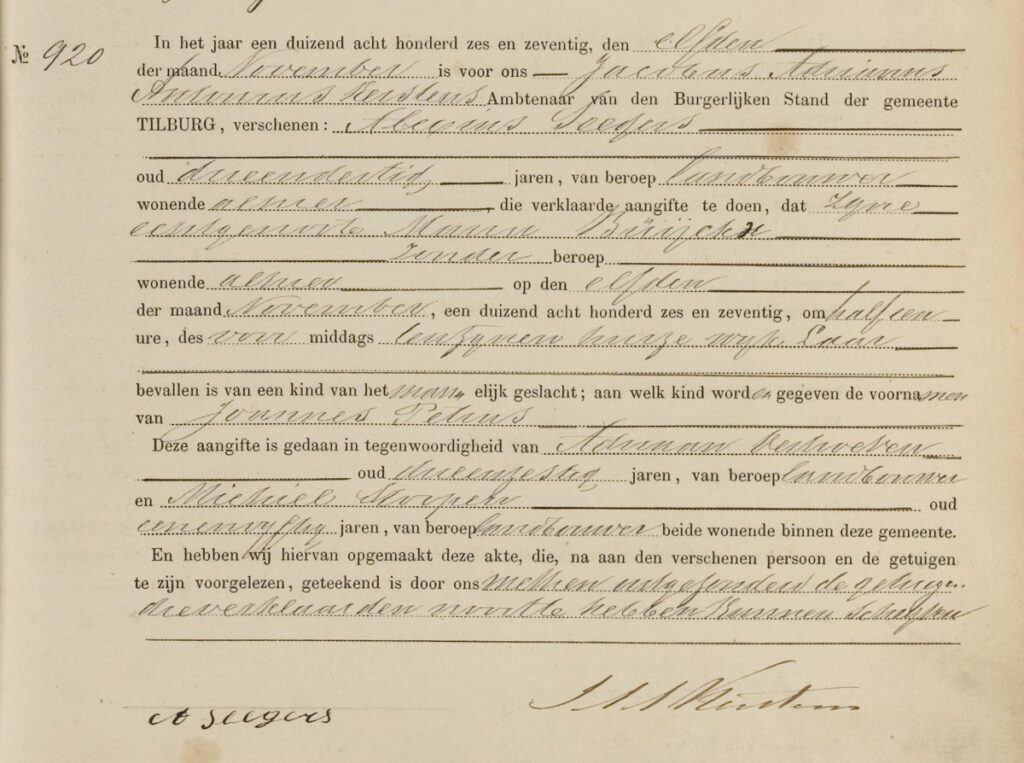 № 920
In het jaar een duizend acht honderd zes en zeventig, den elfden
der maand November is voor ons Jacobus Adrianus
Antonius Kerstens Ambtenaar van den Burgerlijken Stand der gemeente
TILBURG, verschenen: Seegers
oud drieendertig jaren, van beroep landbouwer
wonende alhier, die verklaarde aangifte te doen, dat zijne
echtgenoote Maria
zonder beroep
wonende alhier op den elfden
der maand November, een duizend acht honderd zes en zeventig, om half een
ure, des voor middags ten zijnen huize wijk Laar
bevallen is van een kind van het mann elijk geslacht; aan welk kind worden gegeven de voornamen
van Joannes Petrus
Deze aangifte is gedaan in tegenwoordigheid van Adriaan Verhoeven
oud drieenzestig jaren, van beroep landbouwer
en Michiel oud
eenenvyftig jaren, van beroep landbouwer beide wonende binnen deze gemeente.
En hebben wij hiervan opgemaakt deze akte, die, na aan den verschenen persoon en de getuigen
te zijn voorgelezen, geteekend is door ons met hen uitgezonderd de getuigen
die verklaarden nooit te hebben kunnen schryven
A Seegers